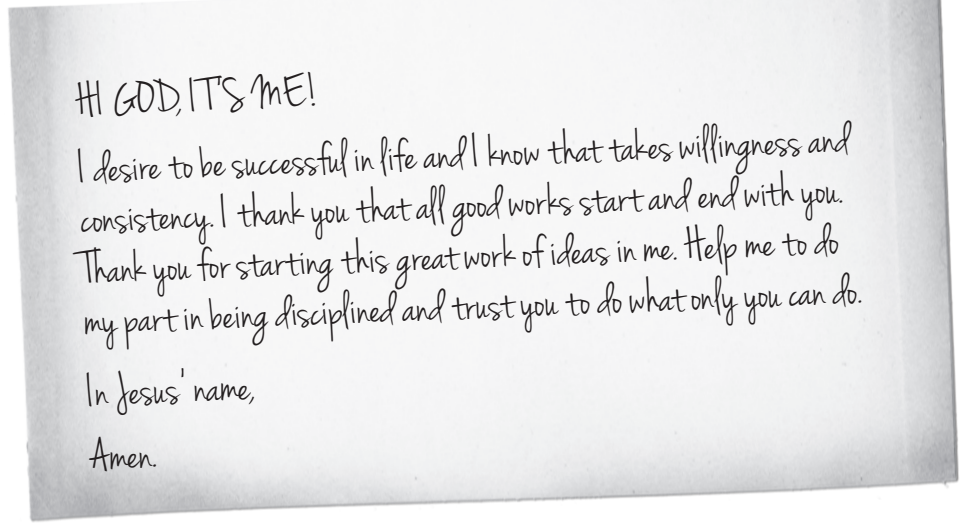 HI GOD, IT'S ME!
I desire to be successful in life and I know that takes willingness and
consistency. I thank you that all good works start and end with you.
Thank you for starting this great work of ideas in me. Help me to do
my part in being disciplined and trust you to do what only you can do.
In Jesus' name,
Amen.